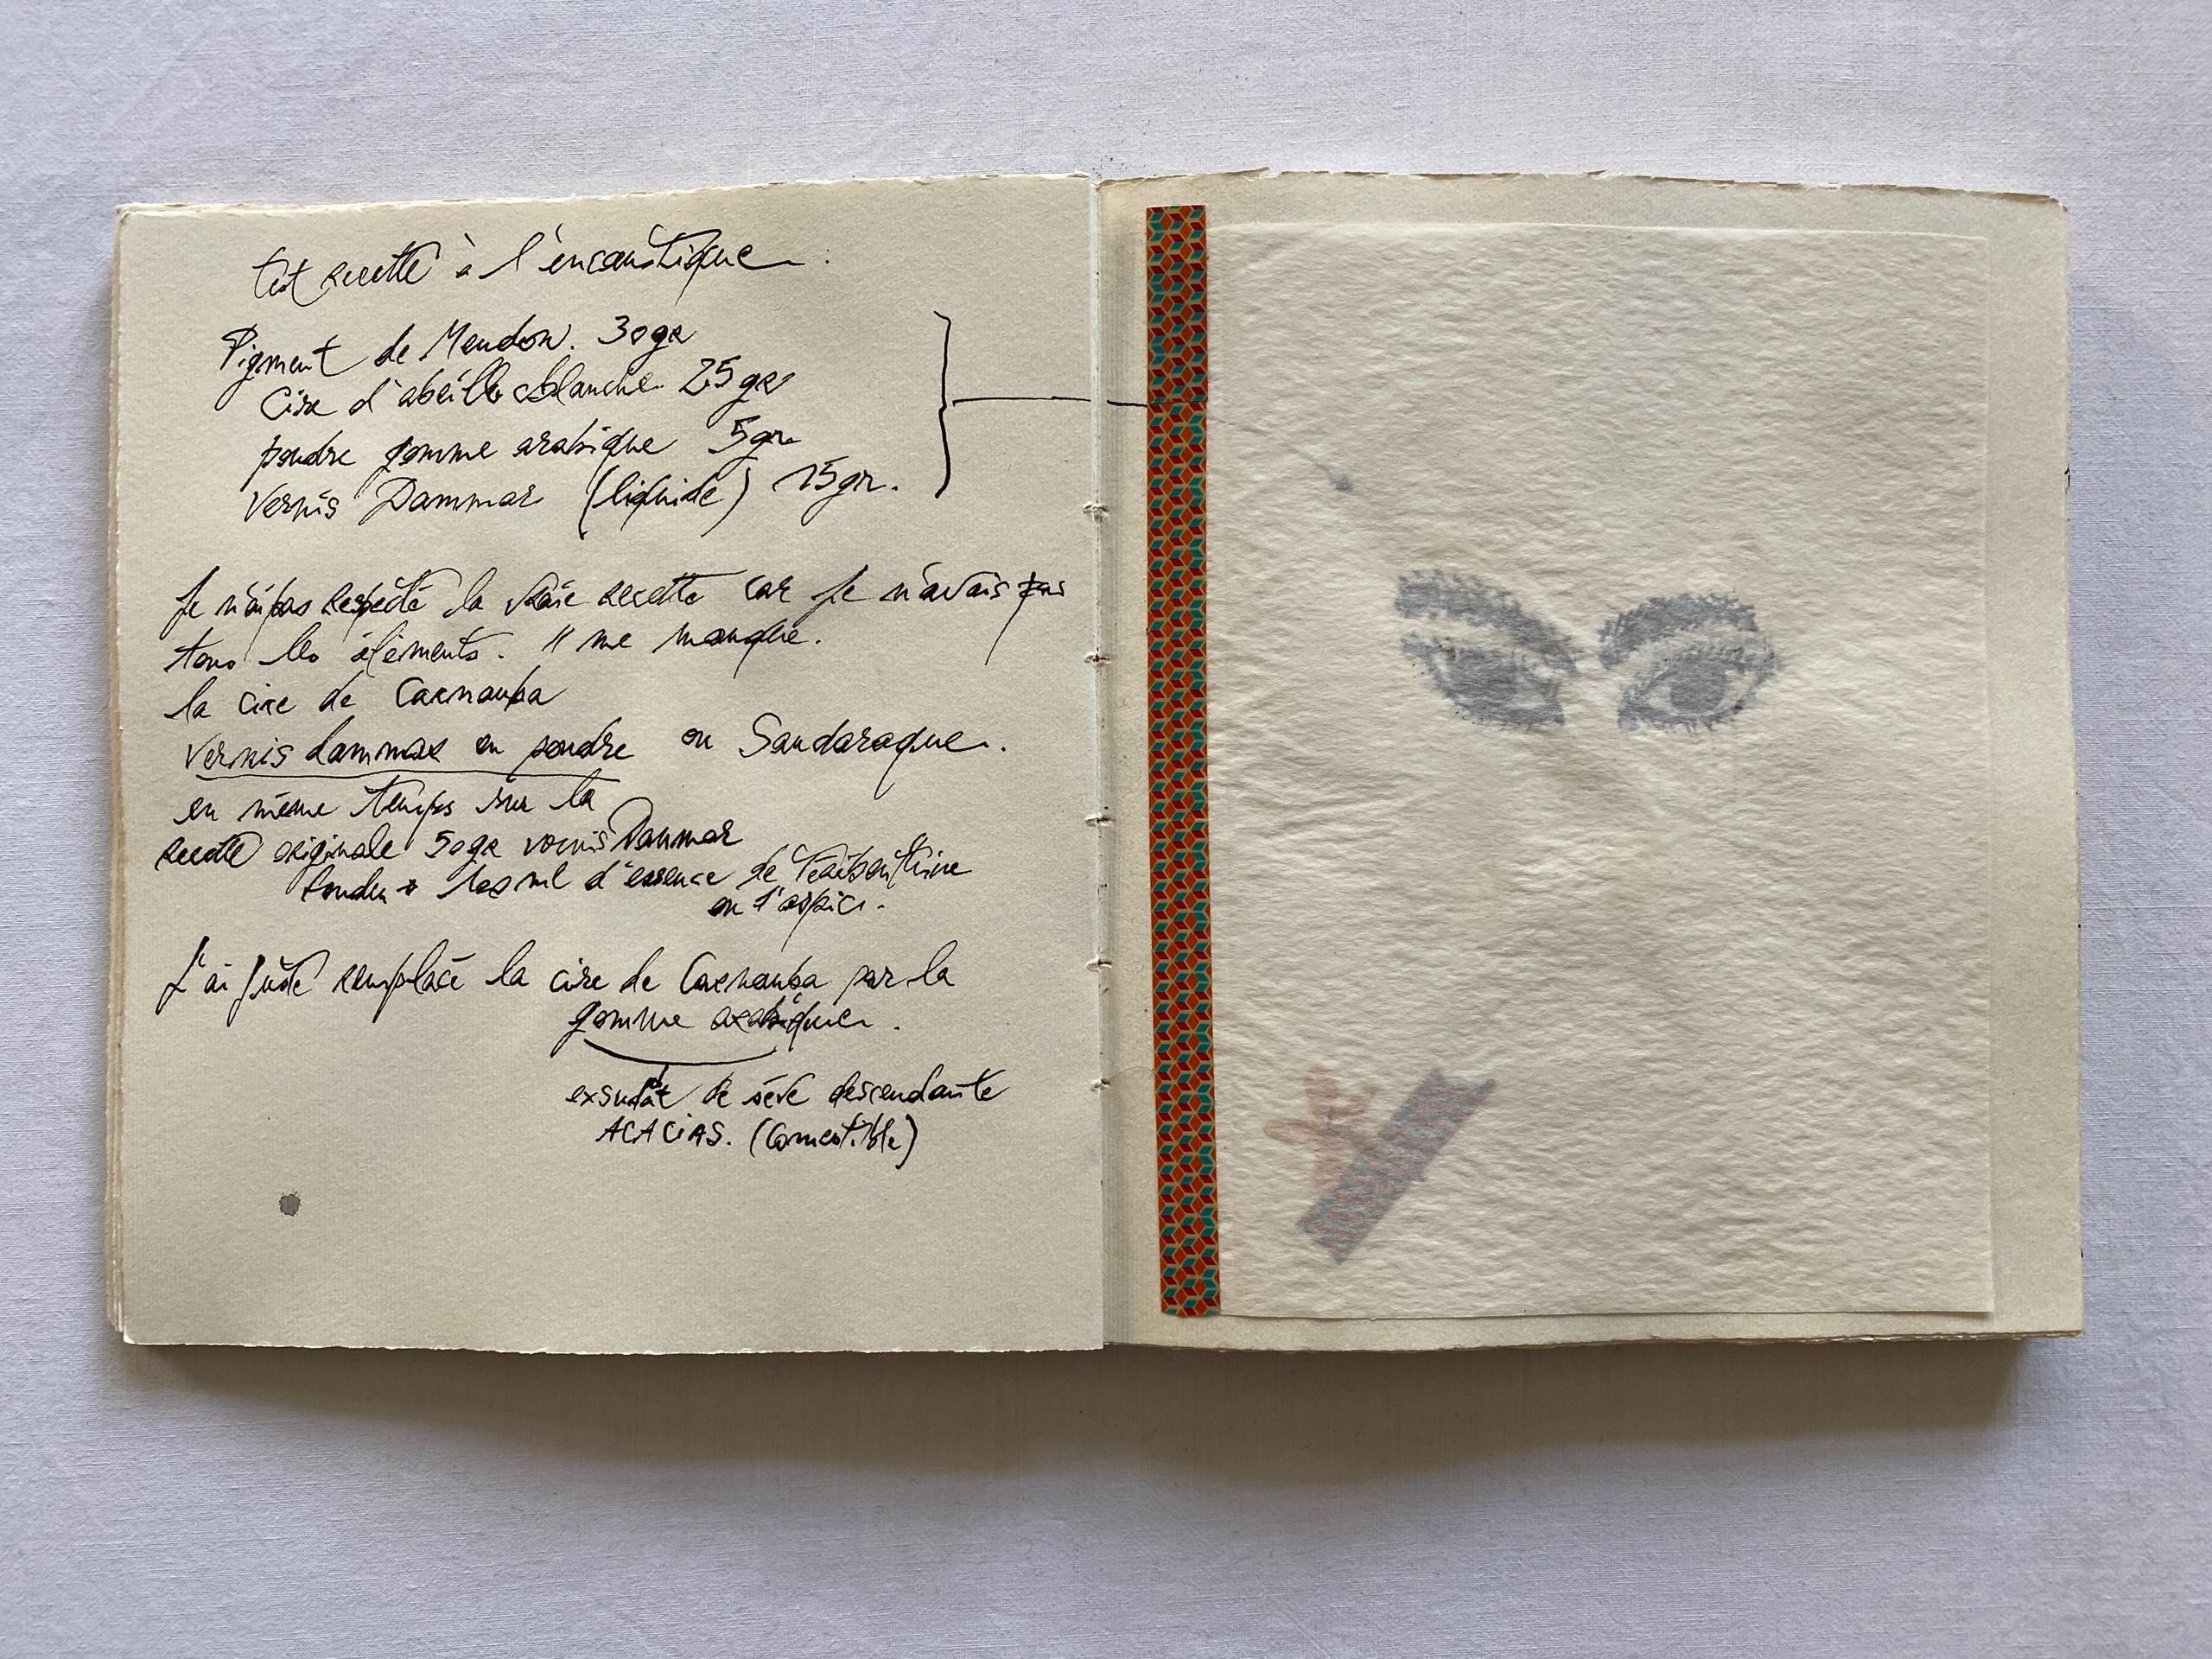 test recette à l'encaustique.
Pigment de Meudon. 30gr
Cire d'abeille blanche 25gr
poudre gomme arabique 5gr
Vernis Dammar (liquide) 15gr.
Je n'ai pas respecté la vraie recette car je n'avais pas
tous les éléments. Il me manque.
la cire de Carnauba
Vernis dammar en poudre ou Sandaraque.
en même temps sur la
recette originale 50gr vernis Dammar
fondu + ml d'essence de Térébenthine
ou d'aspic.
J'ai juste remplacé la cire de Carnauba par la
gomme arabique.
exsudat de sève descendante
ACACIAS. (Comestible)